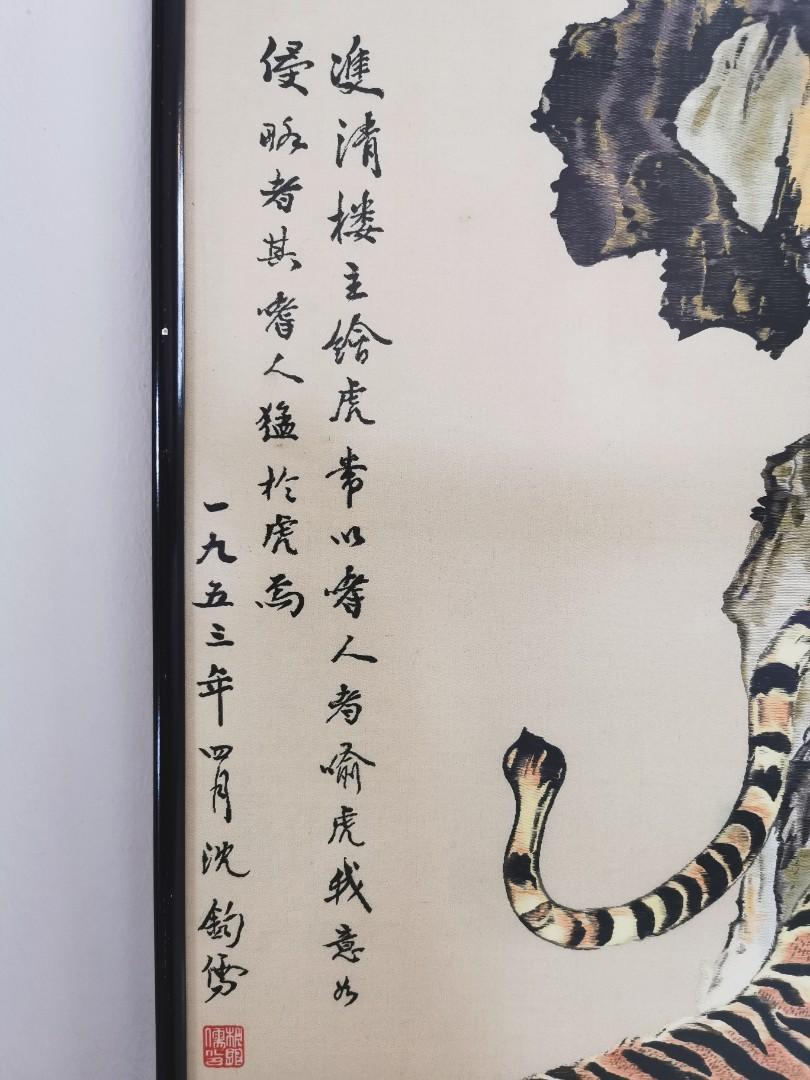 雙清楼主繪虎常以嗜人者喻虎我意如
侵略者其嗜人猛於虎焉
一九五三年四月沈鈞儒